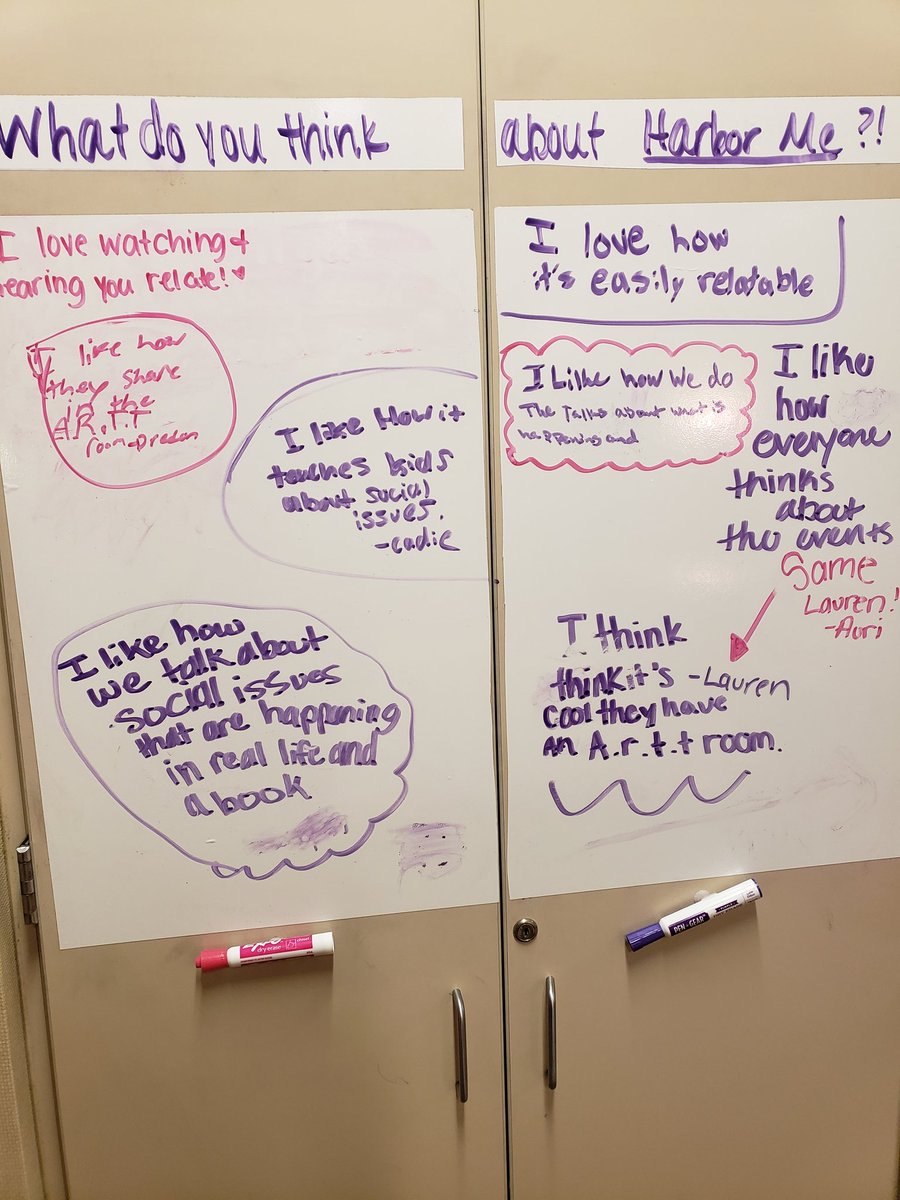 What do you think about Harbor Me?!
I love watching &
hearing you relate! ♥
I like how
they share
in the
A.R.T.T
room
I like How it
teaches kids
about social
issues.
-cadie
I like how
we talk about
social issues
that are happening
in real life and
a book
I love how
it's easily relatable
I Lilke how we do
The Talks about what is
happening and
I like
how
everyone
thinks
about
the events
Same
Lauren!
-Auri
I think
think it's -Lauren
cool they have
an A.r.t.t room.
expo
dry erase
PEN+GEAR